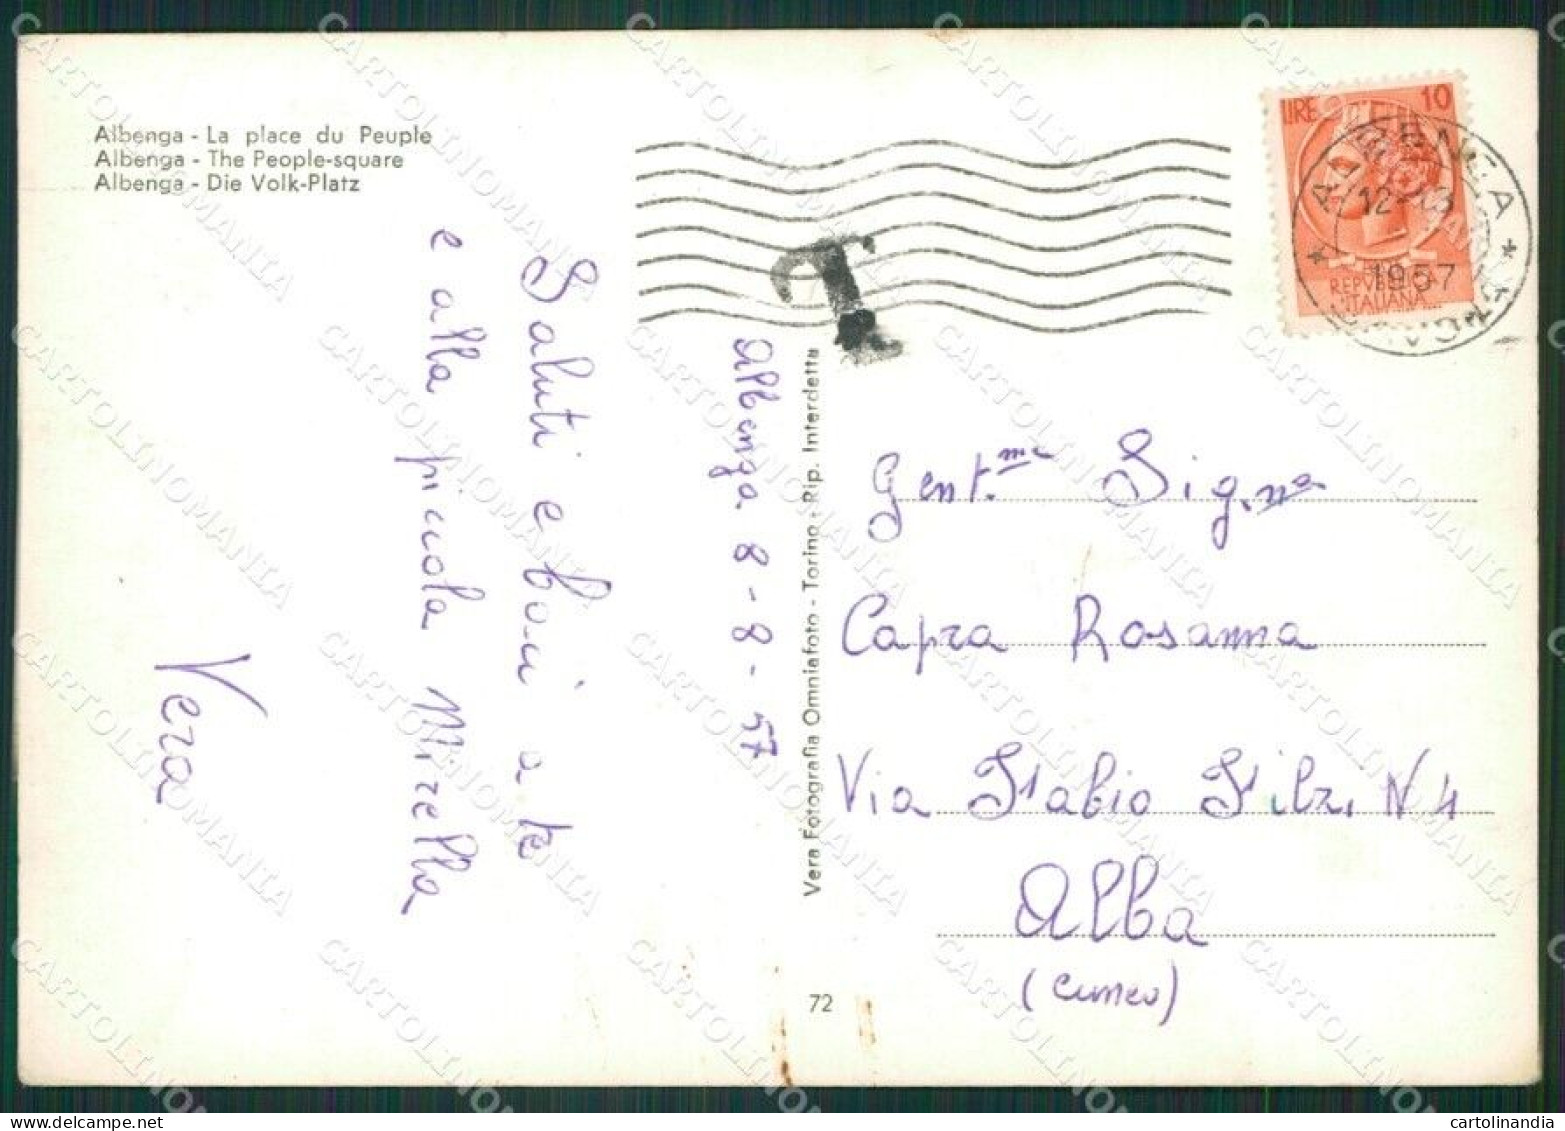 Albenga - La place du Peuple
Albenga - The People-square
Albenga - Die Volk-Platz
Albenga 8-8-57
Saluti e baci a te
e alla piccola Mirella
Vera
Vera Fotografia Omniafoto - Torino - Rip. Interdetta
72
T
LIRE 10
REPVBBLICA
ITALIANA
ALBENGA
1957
Gent.ma Sig.na
Capra Rosanna
Via Fabio Filzi N 4
Alba
(Cuneo)
CARTOLINOMANIA
www.cartolinandia.it